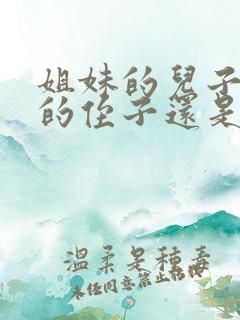 姐妹的兒子
的侄子還是
溫柔是種毒
未經同意禁止轉載